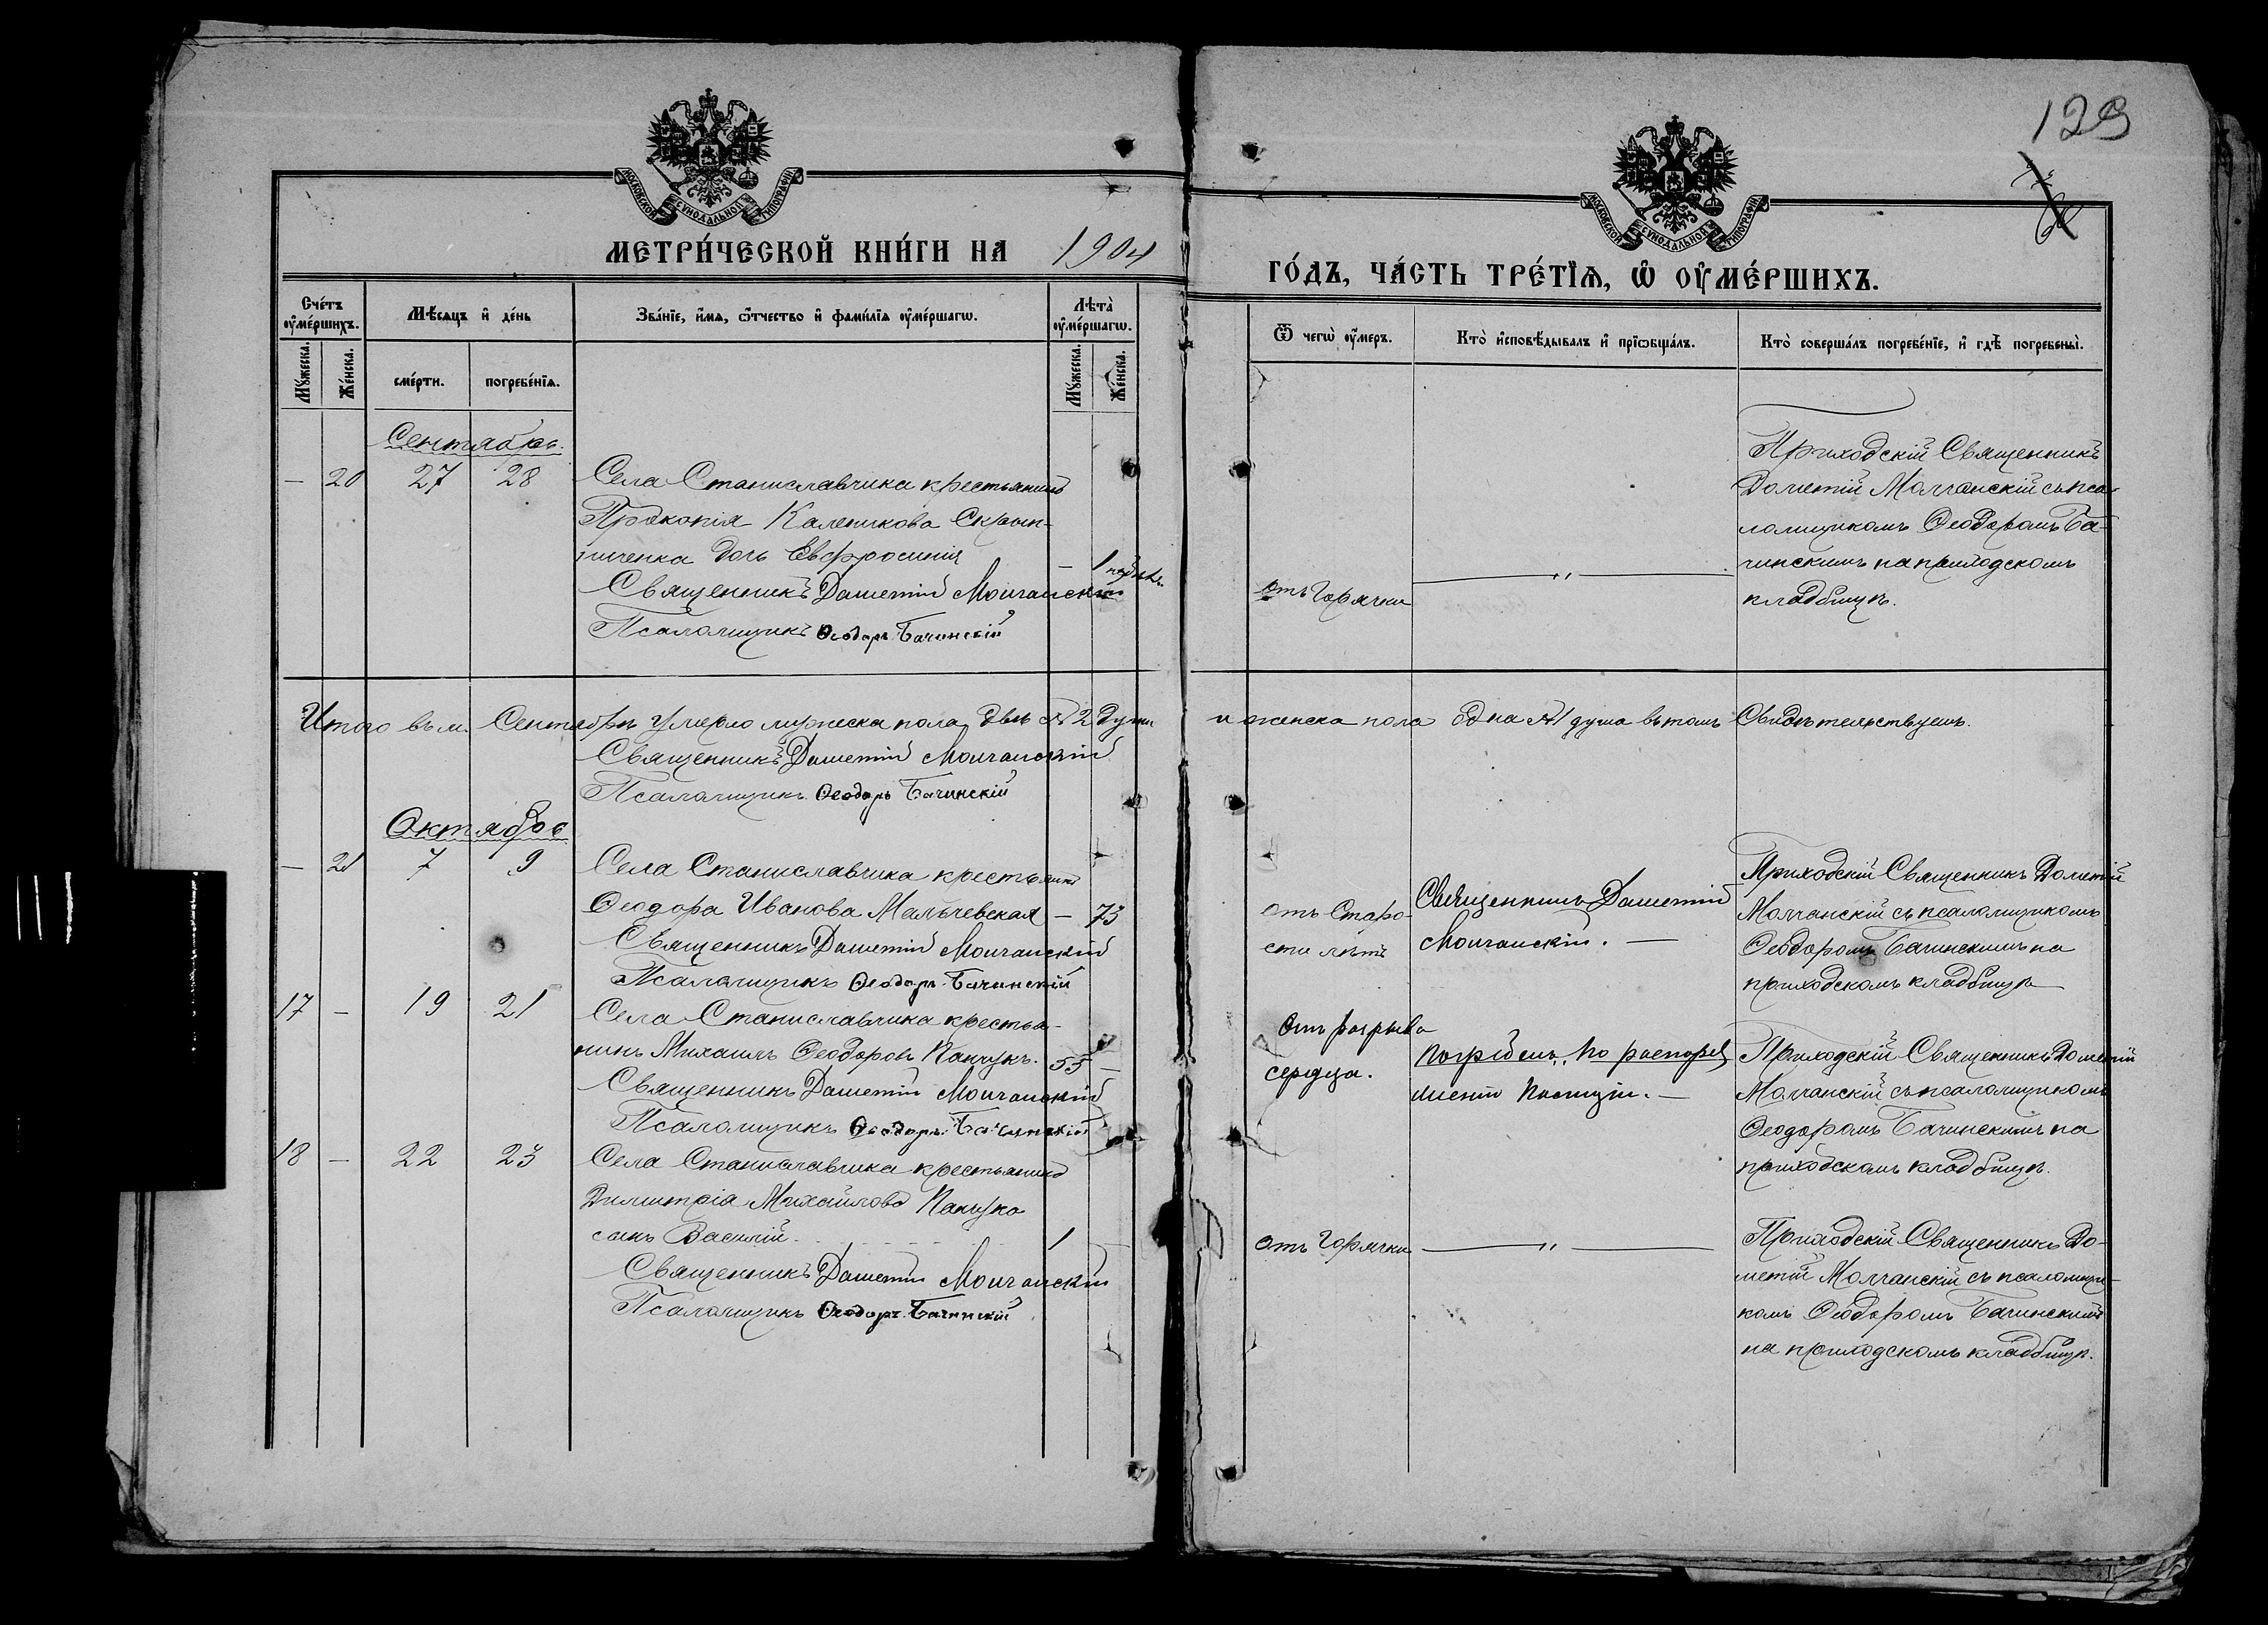 129
МОСКОВСКОЙ СѴНОДАЛЬНОЙ ТИПОГРАФІИ
МОСКОВСКОЙ СѴНОДАЛЬНОЙ ТИПОГРАФІИ
МЕТРИ́ЧЕСКОЙ КНИ́ГИ НА 1904
ГО́ДЪ, ЧА́СТЬ ТРЕ́ТЇѦ, Ѡ҆ ОУ҆МЕ́РШИХЪ.
Сче́тъ оу҆ме́ршихъ.
Мѣ́сяцъ и҆ де́нь
Зва́нїе, и҆́мѧ, ѻ҆́тчество и҆ фами́лїѧ оу҆ме́ршагѡ.
Лѣта̀ оу҆ме́ршагѡ.
Мꙋ́жеска.
Же́нска.
сме́рти.
погребе́нїѧ.
Мꙋ́жеска.
Же́нска.
Ѿ чегѡ̀ оу҆́меръ.
Кто̀ и҆сповѣ́дывалъ и҆ прїѡбща́лъ.
Кто̀ соверша́лъ погребе́нїе, и҆ гдѣ̀ погребены̀.
Сентябрь.
— 20 27 28 Села Станиславчика крестьянина
Прокопія Каленикова Скрып-
ниченка дочь Евфросинія — 1 нед.
Священникъ Дометій Молчанскій
Псаломщикъ Ѳеодоръ Бачинскій
отъ Горячки
— „ —
Приходскій Священникъ
Дометій Молчанскій съ пса-
ломщикомъ Ѳеодоромъ Ба-
чинскимъ на приходскомъ
кладбищѣ.
Итого въ м. Сентябрѣ умерло мужеска пола двѣ № 2 души и женска пола одна № 1 душа въ томъ Свидѣтельствуемъ.
Священникъ Дометій Молчанскій
Псаломщикъ Ѳеодоръ Бачинскій
Октябрь
— 21 7 9 Села Станиславчика крестьянка
Ѳеодора Иванова Мальчевская — 73
Священникъ Дометій Молчанскій
Псаломщикъ Ѳеодоръ Бачинскій
отъ Старо-
сти лѣтъ
Священникъ Дометій
Молчанскій. —
Приходскій Священникъ Дометій
Молчанскій съ псаломщикомъ
Ѳеодоромъ Бачинскимъ на
приходскомъ кладбищѣ
17 — 19 21 Села Станиславчика крестья-
нинъ Михаилъ Ѳеодоровъ Панчукъ. 55 —
Священникъ Дометій Молчанскій
Псаломщикъ Ѳеодоръ Бачинскій
отъ разрыва
сердца.
Погребенъ по распоря
женію Полиціи. —
Приходскій Священникъ Дометій
Молчанскій съ псаломщикомъ
Ѳеодоромъ Бачинскимъ на
приходскомъ кладбищѣ.
18 — 22 23 Села Станиславчика крестьянина
Димитрія Михайлова Панчука
сынъ Василій. 1
Священникъ Дометій Молчанскій
Псаломщикъ Ѳеодоръ Бачинскій
отъ Горячки
— „ —
Приходскій Священникъ До-
метій Молчанскій съ псаломщи-
комъ Ѳеодоромъ Бачинскимъ
на приходскомъ кладбищѣ.